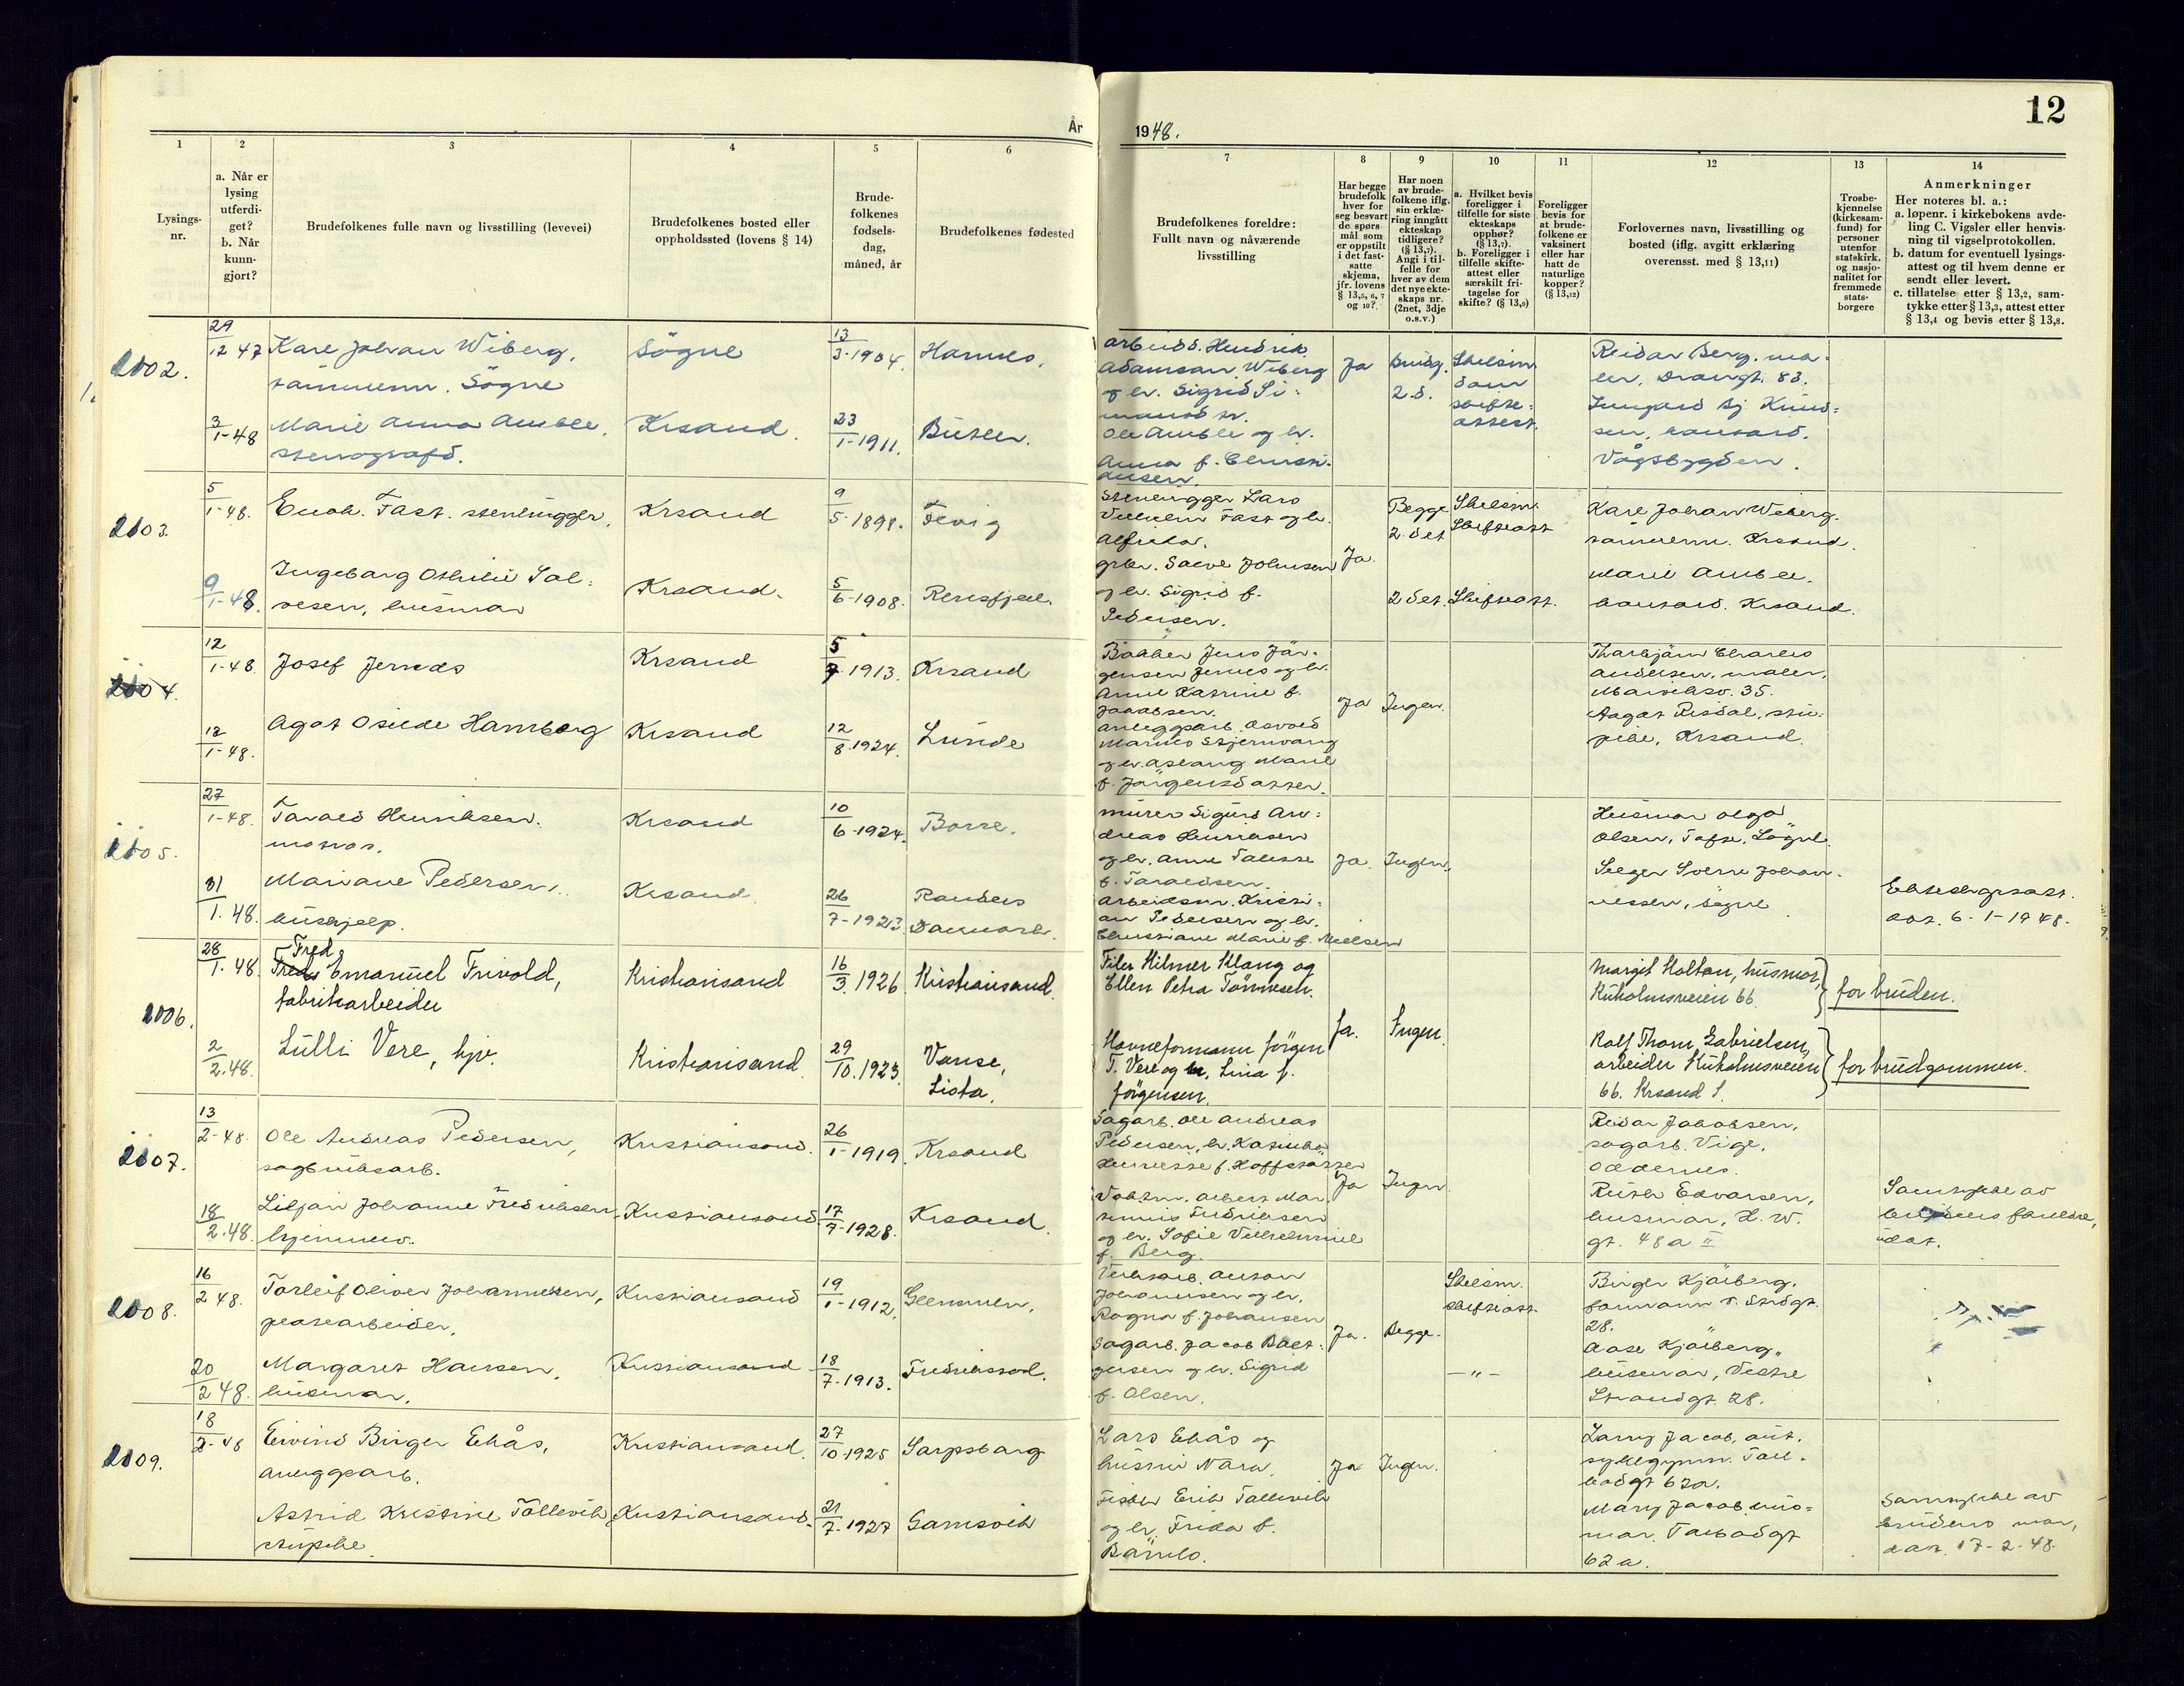 12
År
1948.
1
2
3
4
5
6
7
8
9
10
11
12
13
14
Lysings-
nr.
a. Når er
lysing
utferdi-
get?
b. Når
kunn-
gjort?
Brudefolkenes fulle navn og livsstilling (levevei)
Brudefolkenes bosted eller
oppholdssted (lovens § 14)
Brude-
folkenes
fødsels-
dag,
måned, år
Brudefolkenes fødested
Brudefolkenes foreldre:
Fullt navn og nåværende
livsstilling
Har begge
brudefolk
hver for
seg besvart
de spørs-
mål som
er oppstilt
i det fast-
satte
skjema,
jfr. lovens
§ 13,5, 6, 7
og 10?
Har noen
av brude-
folkene iflg.
sin erklæ-
ring inngått
ekteskap
tidligere?
(§ 13,7).
Angi i til-
felle for
hver av dem
det nye ekte-
skaps nr.
(2net, 3dje
o.s.v.)
a. Hvilket bevis
foreligger i
tilfelle for siste
ekteskaps
opphør?
(§ 13,7).
b. Foreligger i
tilfelle skifte-
attest eller
særskilt fri-
tagelse for
skifte? (§ 13,9)
Foreligger
bevis for
at brude-
folkene er
vaksinert
eller har
hatt de
naturlige
kopper?
(§ 13,12)
Forlovernes navn, livsstilling og
bosted (iflg. avgitt erklæring
overensst. med § 13,11)
Trosbe-
kjennelse
(kirkesam-
fund) for
personer
utenfor
statskirk.
og nasjo-
nalitet for
fremmede
stats-
borgere
Anmerkninger
Her noteres bl. a.:
a. løpenr. i kirkebokens avde-
ling C. Vigsler eller henvis-
ning til vigselprotokollen.
b. datum for eventuell lysings-
attest og til hvem denne er
sendt eller levert.
c. tillatelse etter § 13,2, sam-
tykke etter § 13,3, attest etter
§ 13,4 og bevis etter § 13,8.
2002.
29/12 47
Kare Johan Wiberg,
tømmerm. Søgne
Søgne
13/3-1904.
arbeids. Hendrik
Adamsen Wiberg
og h. Sigrid Si-
Ja
Brudg.
2.d.
Skilsm.
dom
skifte-
attest.
Reidar Berg, ma-
ler, Drongt. 83.
3/1-48
Marie Anna Amble,
stenograf.
Krsand.
23/1-1911.
Ole Amble og h.
Anna f.
sen, kontord.
Vågsbygden.
2003.
5/1-48.
Enok Fast. stenhugger,
Krsand
9/5-1898.
Stenhugger Lars
Vilhelm Fast og h.
Begge
2 det
Skilsm.
Skifteatt
Kare Johan Wiberg.
tømmerm. Krsand.
9/1-48.
Ingeborg Othilie Sal-
vesen, husmor
Krsand.
5/6-1908.
og h. Sigrid f.
Pedersen.
Ja.
2 det.
Skifteatt.
Marie Amble.
kontord. Krsand.
2004.
12/1-48
Josef Jernes
Krsand
5/7 1913.
Krsand
Bakker Jens Jør-
gensen Jernes og h.
Anne Katrine f.
Jacobsen.
Ja
Ingen.
Thorbjørn Charles
Andersen, maler,
35.
18/1-48.
Agot Osilde Hamborg
Krsand
12/8.1924.
Lunde
anleggsarb. Osvald
Marius Stjernvang
og h. Aslaug Marie
f. Jørgensdatter.
Aagot Risdal, stu-
pike, Krsand.
2005.
27/1-48.
Tarald Henriksen.
matros.
Krsand
10/6-1924.
Borre.
murer Sigurd An-
dreas Henriksen
og h. Anne Talette
f. Taraldsen.
Ja
Ingen.
Husmor Olga
Olsen, Søgne.
31/1.48.
Mariane Pedersen.
hushjelp.
Krsand
26/7-1923
Randers
Danmark.
Arbeidsm. Kristi-
an Pedersen og h.
Christiane Marie f. Nielsen
Selger Sverre Johan-
nessen, Søgne
dat. 6-1-1948.
2006.
28/1.48.
Fred
Emanuel Trivold,
fabrikarbeider
Kristiansand
16/3.1926
Kristiansand.
Filer Hilmer Klang og
Ellen Petra Tønnesen.
Ja.
Ingen
Margit Holtan, husmor,
Kuholmsveien 66
for bruden.
2/2.48.
Lulli Vere, hjv.
Kristiansand
29/10.1923.
Vanse,
Lista.
Havneformann Jørgen
T. Vere og h. Lina f.
Jørgensen.
Rolf Thom Gabrielsen,
arbeider Kuholmsveien
66. Krsand S.
for brudgommen.
2007.
13/2-48.
Ole Andreas Pedersen,
sagbruksarb.
Kristiansand.
26/1-1919.
Krsand
Sagarb. Ole Andreas
Pedersen, h. Kasimba
Henriette f. Hoffstatter
Ja
Ingen
Reidar Jakobsen,
sagarb. Vige,
Oddernes.
18/2.48.
Liljan Johanne Fredriksen
hjemmev.
Kristiansand
17/7-1928.
Krsand.
Vaktm. Albert Mar-
tinius Fredriksen
og h. Sofie Vilhelmine
f. Berg.
Ruth Edvarsen,
husmor, H. W.
gt. 48a II
Samtykke av
brudens foreldre,
udat.
2008.
16/2 48.
Torleif Oliver Johannessen,
platearbeider,
Kristiansand
19/1-1912.
Glemmen,
Verksarb. Anton
Johannesen og h.
Ragna f. Johansen
Ja.
Begge.
Skilsm.
skifteatt
Birger Kjølberg,
formann v. Strdgt.
28.
20/2 48.
Margaret Hansen,
husmor,
Kristiansand
18/7.1913.
Fredrikstad.
Sagarb. Jacob
og h. Sigrid
f. Olsen.
—"—
Aase Kjølberg,
husmor, Vestre
Strandgt. 28.
2009.
18/2-48
Eivind Birger Ekås,
anleggsarb.
Kristiansand.
27/10-1925
Sarpsborg
Lars Ekås og
hustru Nora.
Ja
Ingen.
Larry Jacob, aut.
sykegymn. Toll-
bodgt 62a.
Astrid Kristine Tollevik,
stupike
Kristiansand.
21/7.1927
Gamvik
Fisker Erik Tollevik
og h. Frida f.
Mary Jacob, hus-
mor. Tolbodgt
62a.
Samtykke av
brudens mor,
dat. 17-2-48.